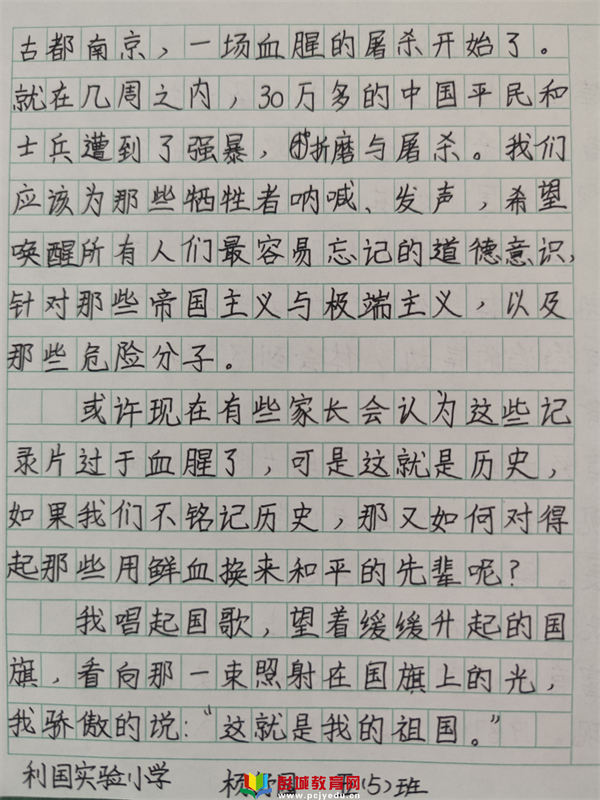 古都南京，一场血腥的屠杀开始了。
就在几周之内，30万多的中国平民和
士兵遭到了强暴，折磨与屠杀。我们
应该为那些牺牲者呐喊、发声，希望
唤醒所有人们最容易忘记的道德意识，
针对那些帝国主义与极端主义，以及
那些危险分子。
或许现在有些家长会认为这些记
录片过于血腥了，可是这就是历史，
如果我们不铭记历史，那又如何对得
起那些用鲜血换来和平的先辈呢？
我唱起国歌，望着缓缓升起的国
旗，看向那一束照射在国旗上的光，
我骄傲的说：“这就是我的祖国。”
利国实验小学 杨 五(5)班
彭城教育网
www.pcjyedu.cn